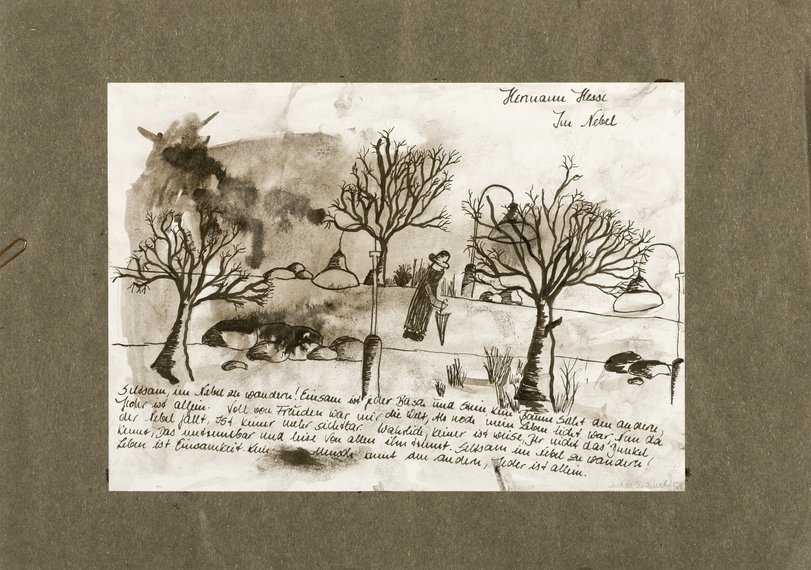 Hermann Hesse
Im Nebel
Seltsam, im Nebel zu wandern! Einsam ist jeder Busch und Stein Kein Baum sieht den andern,
Jeder ist allein. Voll von Freunden war mir die Welt, Als noch mein Leben licht war. Nun da
der Nebel fällt, Ist keiner mehr sichtbar. Wahrlich, keiner ist weise, Der nicht das Dunkel
kennt, Das untrennbar und leise Von allen ihn trennt. Seltsam im Nebel zu wandern!
Leben ist Einsamkeit Kein Mensch kennt den andern, Jeder ist allein.